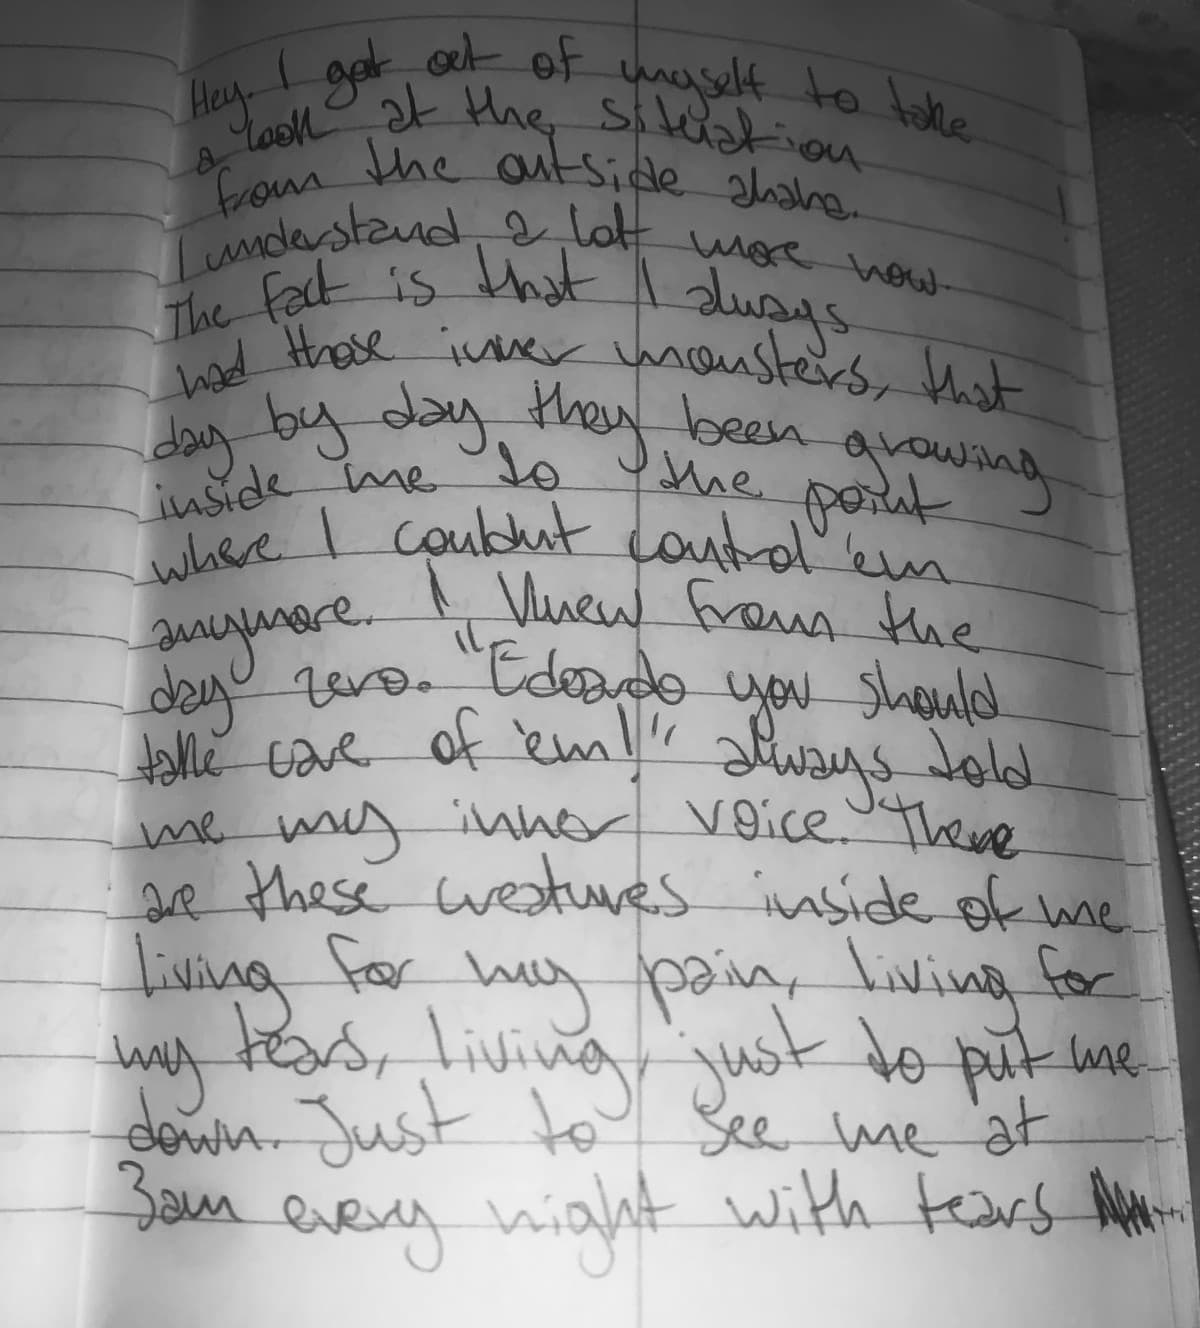 Hey. I got out of myself to take
a look at the situation
from the outside ahaha.
I understand a lot more now.
The fact is that I always
had those inner monsters, that
day by day they been growing
inside me to the point
where I couldnt control 'em
anymore. I knew from the
day zero. "Edoardo you should
take care of 'em!" always told
me my inner voice. There
are these creatures inside of me
living for my pain, living for
my tears, living, just to put me
down. Just to see me at
3am every night with tears